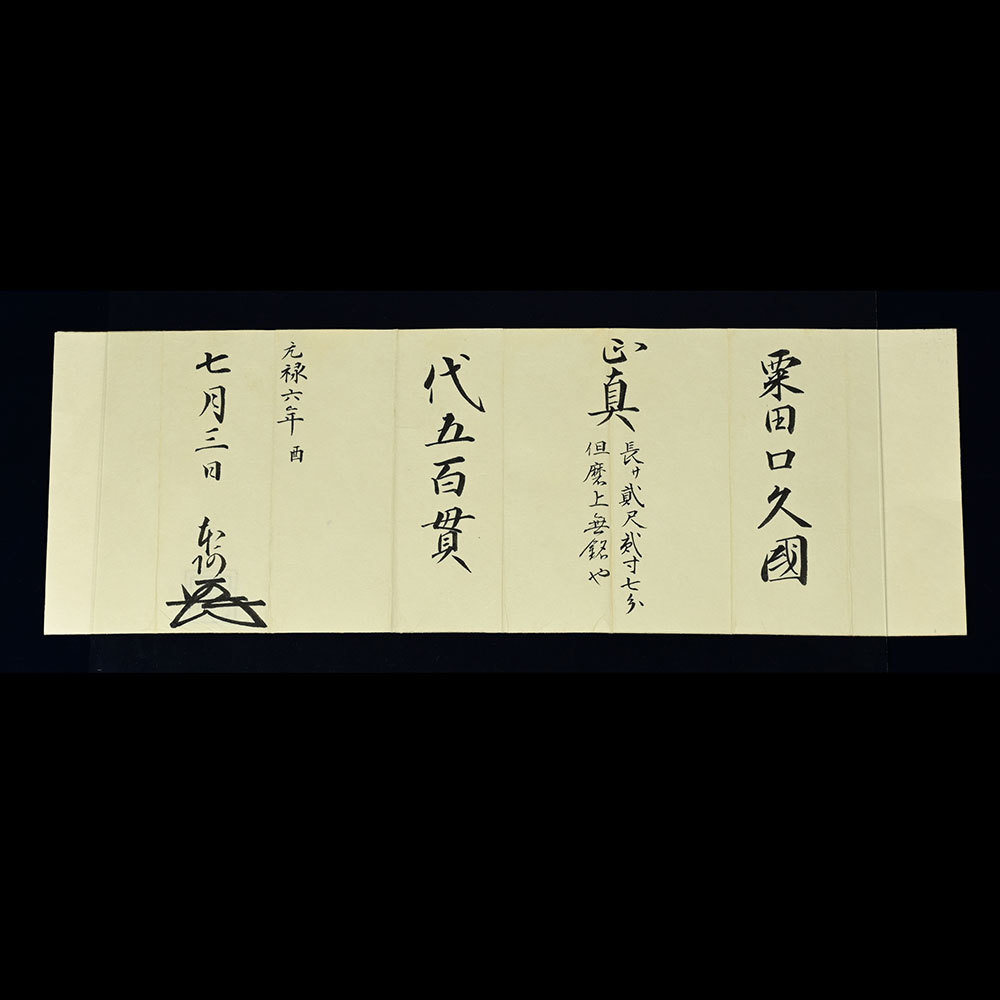 粟田口久國
正真
長サ貳尺貳寸七分
但磨上無銘也
代五百貫
元禄六年
酉
七月三日
本阿